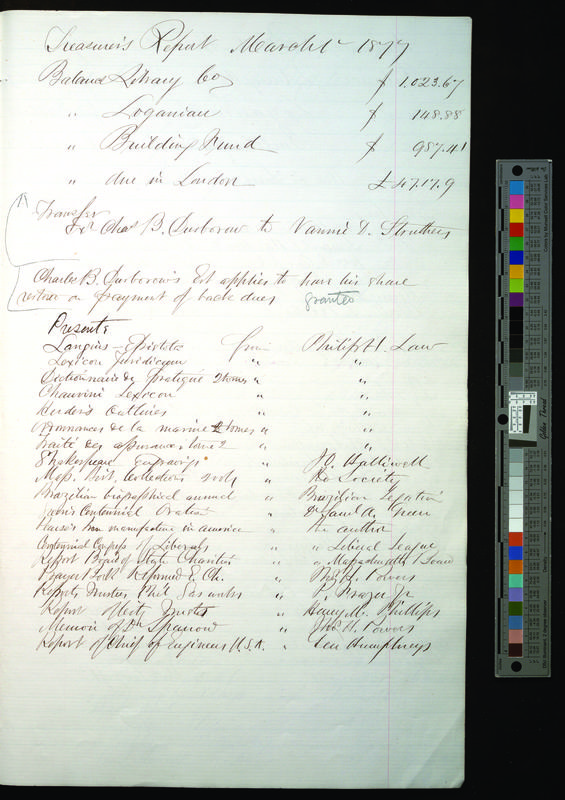 Treasurer's Report March 1st 1877
Balance Library Co $ 1,023.67
" Loganian $ 148.88
" Building Fund $ 987.41
" due in London £ 47.17.9
Transfer
for Chas B. Durborow to Nannie D. Struthers
Charles B. Durborow's Est applies to have his share
restored on payment of back dues granted
Presents
Langius Epistola From Philip H. Law
Lexicon Juridicum " "
Dictionnaire de Pratique 2 tomes " "
Chauvini Lexicon " "
" "
Ordonnances de la marine 2 tomes " "
Traité des assurances tome 2 " "
Shakespeare Engravings " J.O. Halliwell
Mass. Hist. Collections " Do Society
Brazilian biographical annual " Brazilian Legation
Centennial Oration "
iron manufacture in America " the author
Centennial Congress of Liberals " " Liberal League
Report Board of State Charities " " Massachusetts Board
Prayer Book Reformed E. Ch. " Powers
Reports Trustees Phil Gas works " P. Frazer Jr
Report City Trusts " Henry M. Phillips
Memoir of Wm Sparrow " Powers
Report of Chief of Engineers U.S.A. " Gen Humphreys